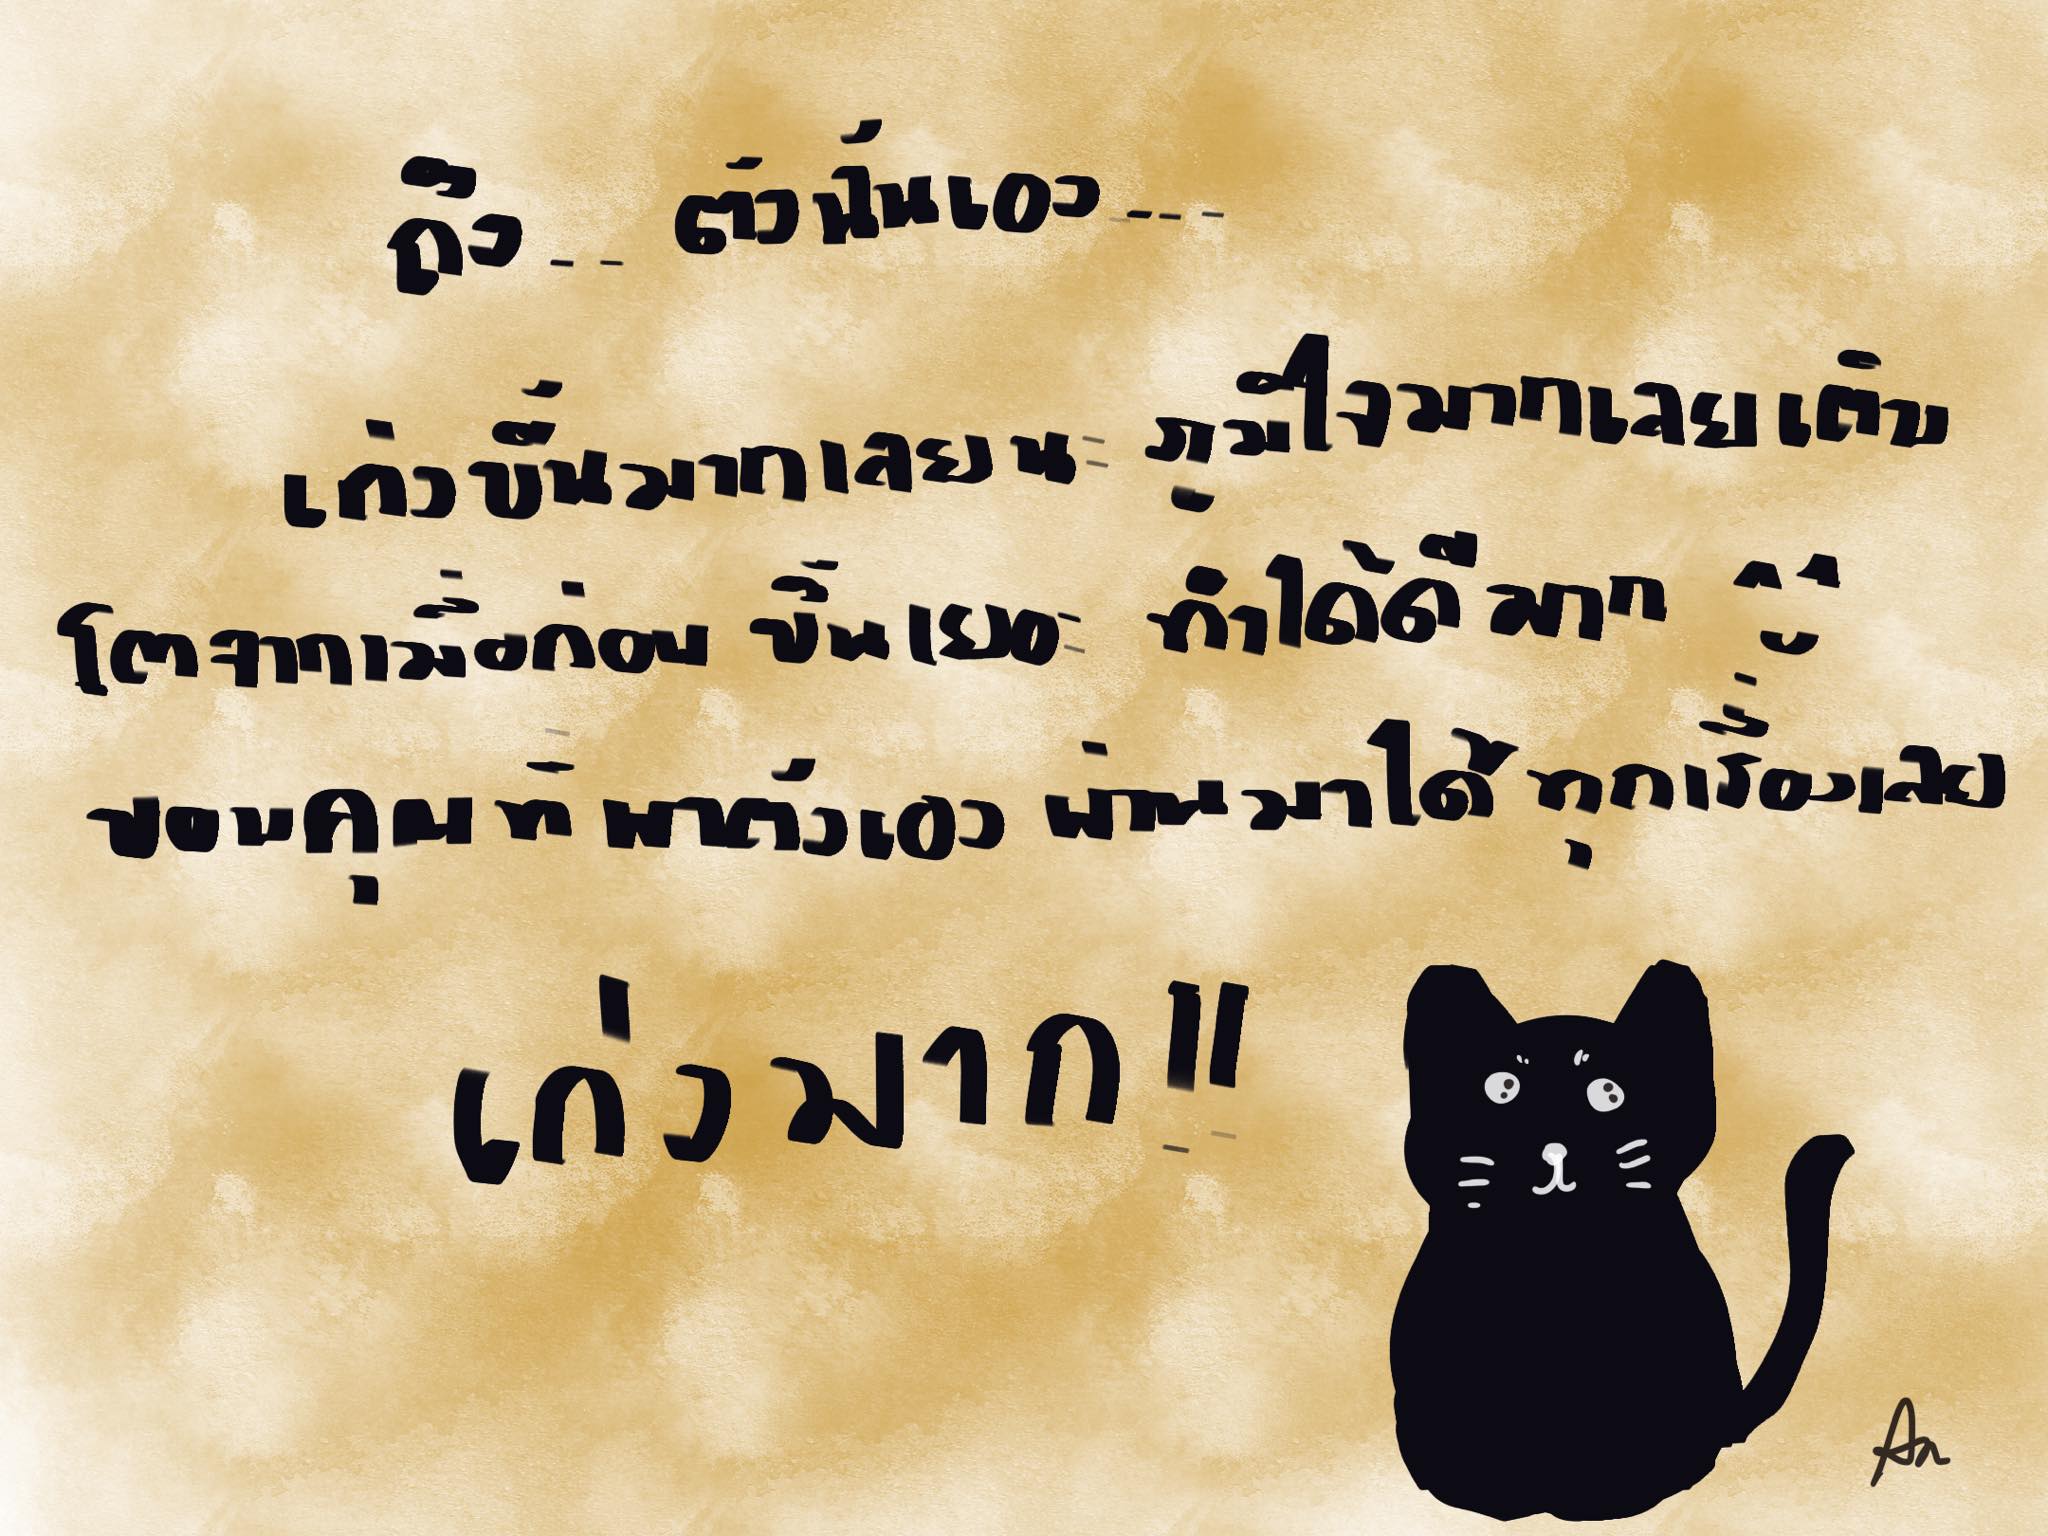 ถึง.. ตัวฉันเอง....
เก่งขึ้นมากเลยนะ ภูมิใจมากเลยเติบ
โตจากเมื่อก่อน ขึ้นเยอะ ทำได้ดี มาก
ขอบคุณที่ พาตัวเอง ผ่านมาได้ ทุกเรื่องเลย
เก่งมาก!!
An